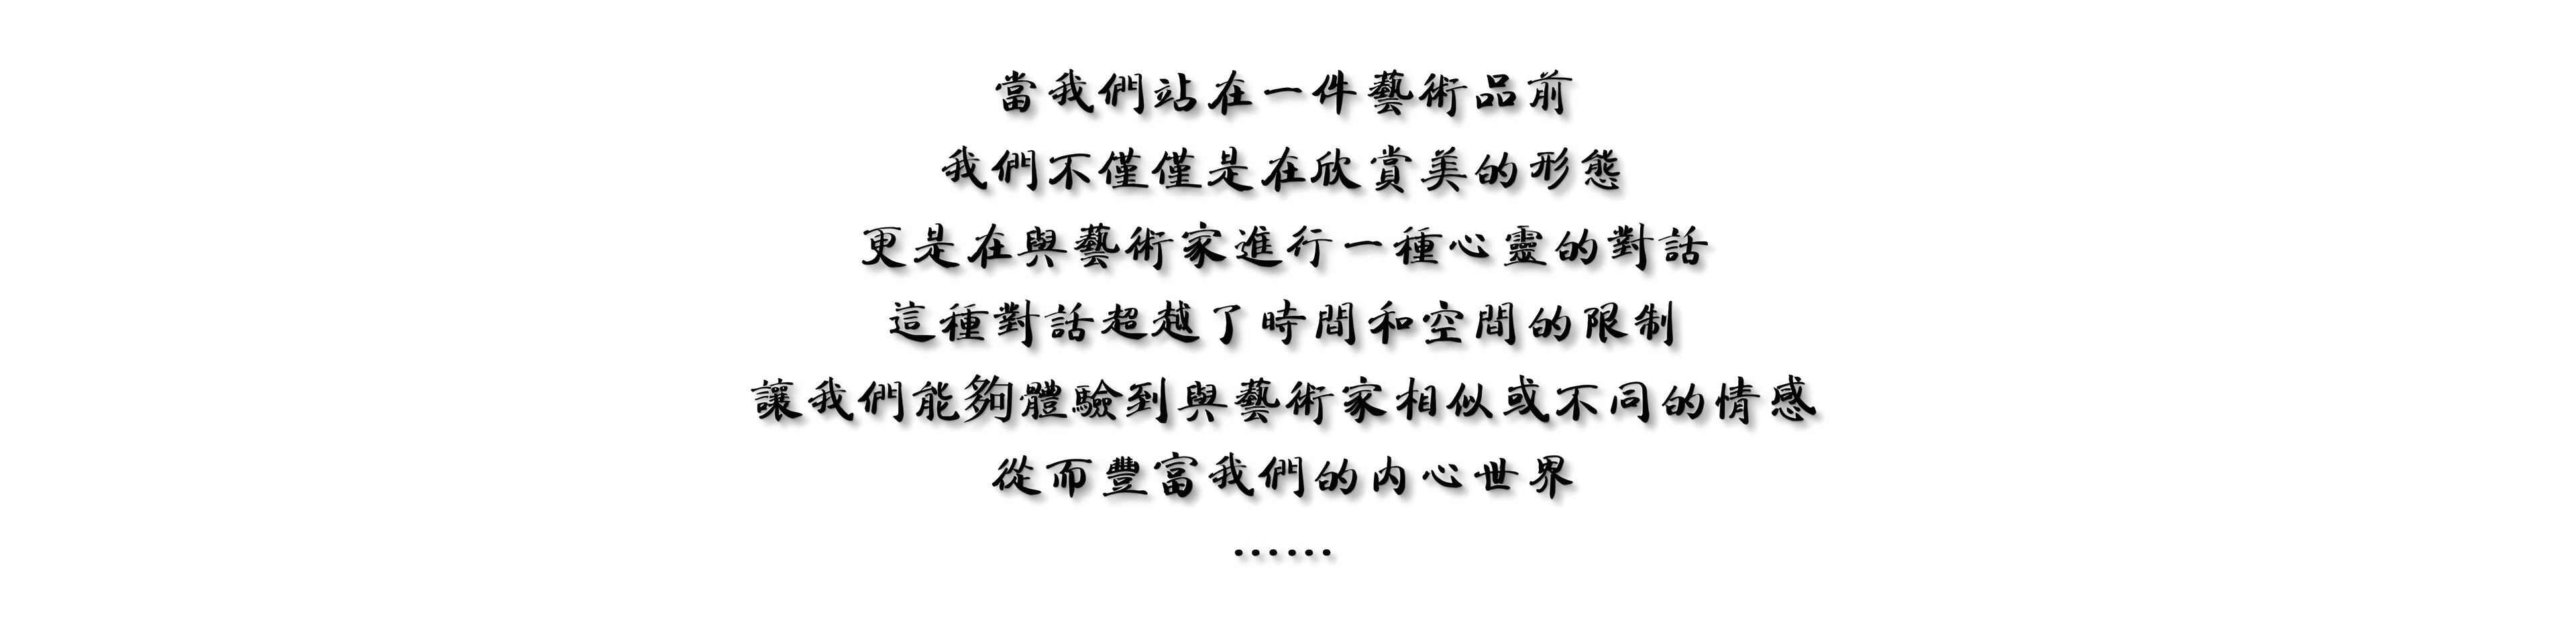 當我們站在一件藝術品前
我們不僅僅是在欣賞美的形態
更是在與藝術家進行一種心靈的對話
這種對話超越了時間和空間的限制
讓我們能夠體驗到與藝術家相似或不同的情感
從而豐富我們的內心世界
······